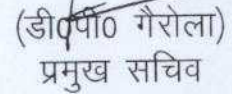 (डी०पी० गैरोला)
प्रमुख सचिव